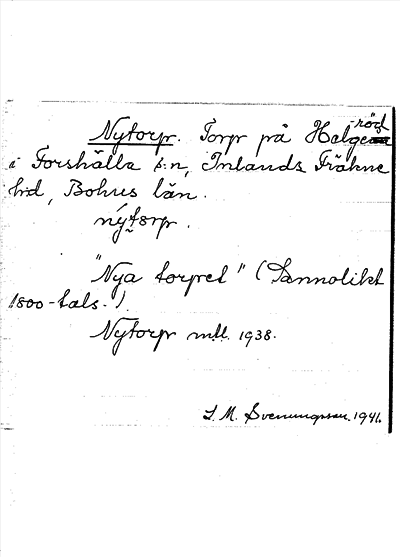 Nytorp. Torp på Halgeröd
i Forshälla s:n, Inlands Fräkne
h:d, Bohus län.
nýtorp.
"Nya torpet" (Sannolikt
1800-tals.)
Nytorp m.ll. 1938.
S. M. Svenungsson. 1941.